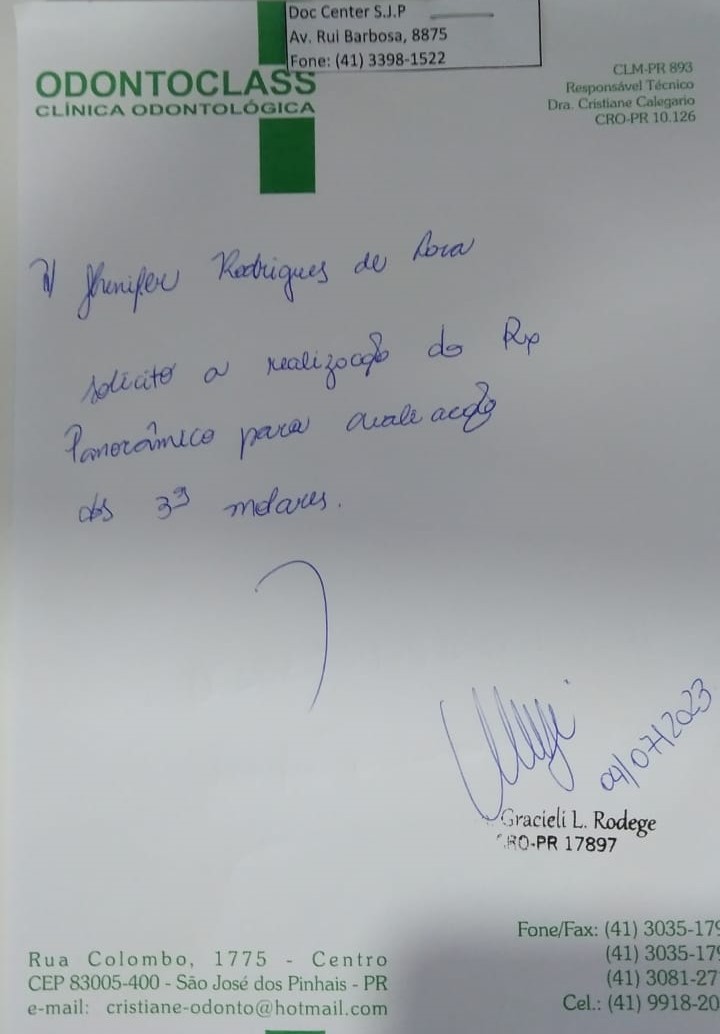 Doc Center S.J.P
Av. Rui Barbosa, 8875
Fone: (41) 3398-1522
ODONTOCLASS
CLÍNICA ODONTOLÓGICA
CLM-PR 893
Responsável Técnico
Dra. Cristiane Calegario
CRO-PR 10.126
P/ Jhenifer Rodrigues de
solicito a realização do Rx
Panorâmico para avaliação
dos 3ºs molares.
04/07/2023
Gracieli L. Rodege
CRO-PR 17897
Rua Colombo, 1775 - Centro
CEP 83005-400 - São José dos Pinhais - PR
e-mail: cristiane-odonto@hotmail.com
Fone/Fax: (41) 3035-179
(41) 3035-179
(41) 3081-27
Cel.: (41) 9918-20